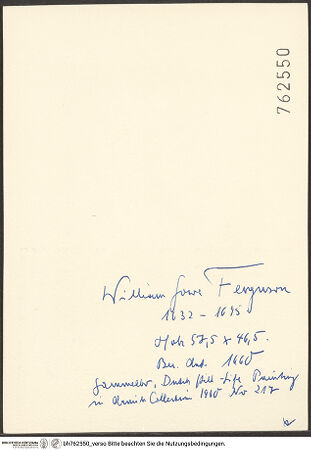 762550
William Gowe Ferguson
1632 – 1695
Holz 57,5 x 46,5.
Bez. dat. 1660
Sammelbr. Dutch Still-Life Painting
in Collection 1960 Nr 217
bh762550_verso Bitte beachten Sie die Nutzungsbedingungen.